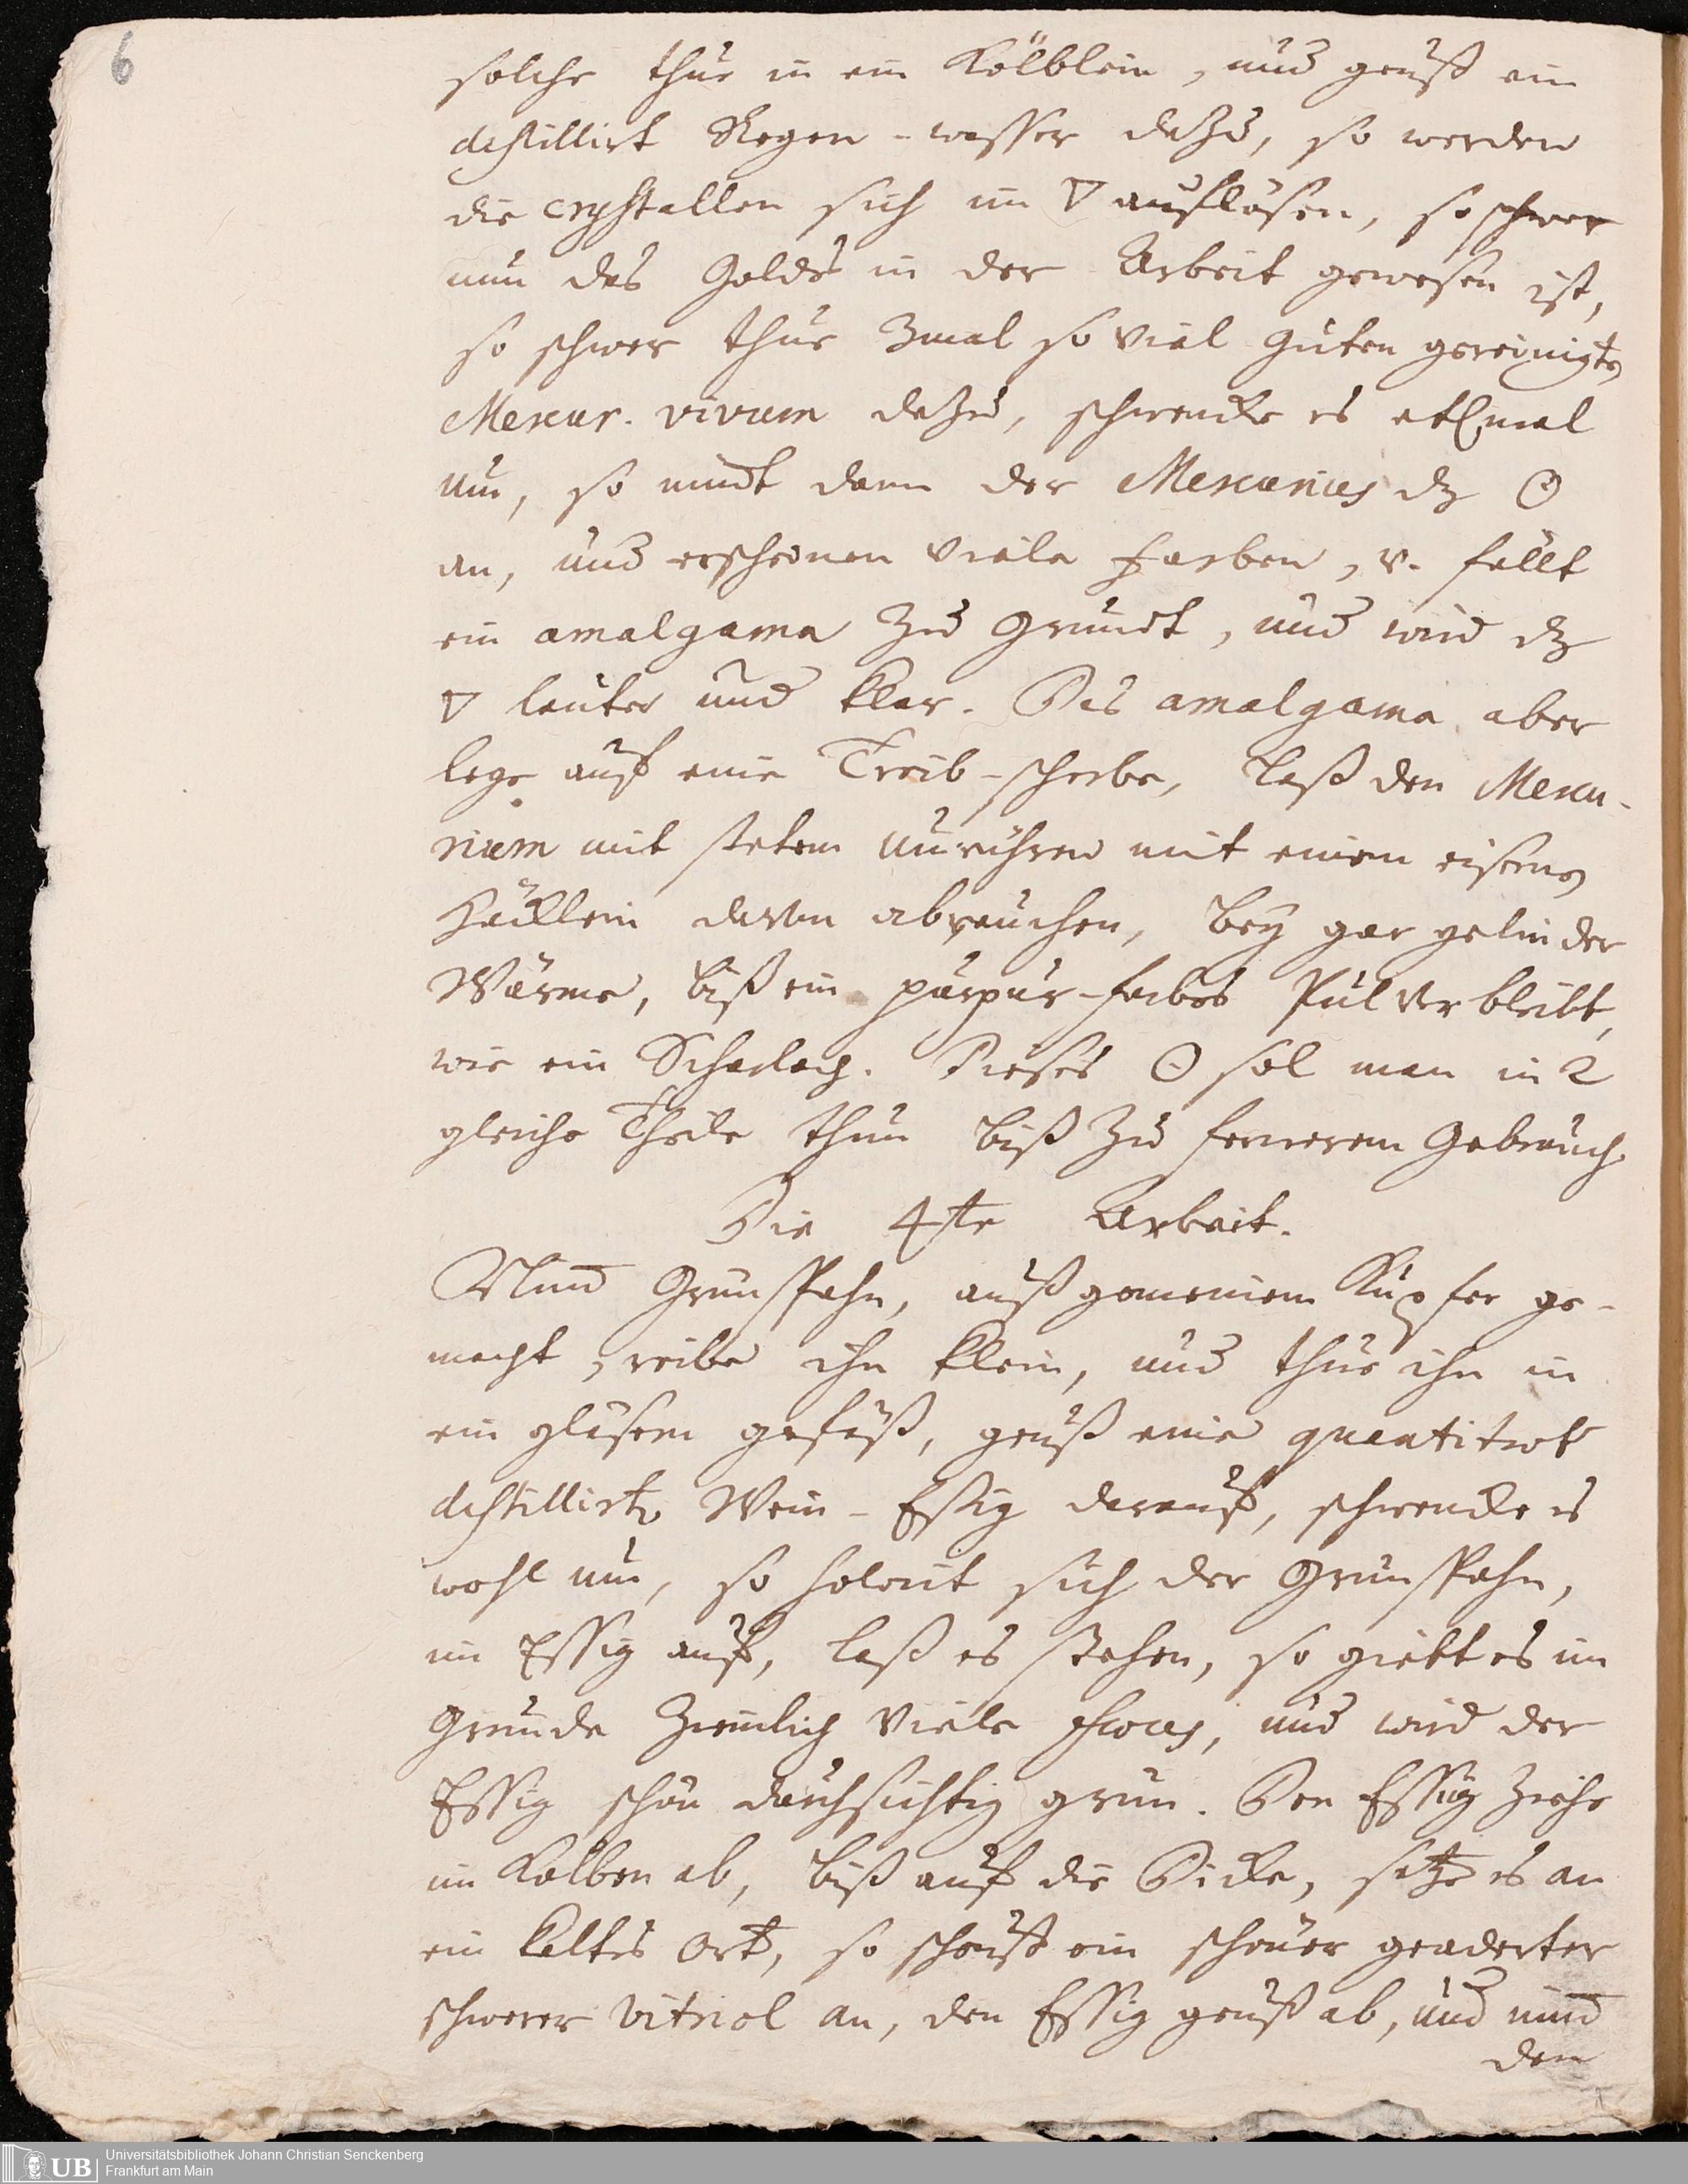 6
solche thue in ein Kölblein, und geuß ein
destillirt Regen-wasser dazu, so werden
die crystallen sich im 🜄 auflösen, so schwer
nun des Goldes in der Arbeit gewesen ist,
so schwer thue 3mal so viel guten gereinigten
Mercur. vivum dazu, schwencke es etlmal
um, so nimt dann der Mercurius dz ☉
an, und erscheinen viele farben, v. fällt
ein amalgama zu Grundt, und wird dz
🜄 lauter und klar. Dis amalgama aber
lege auf eine Treib-scherbe, laß den Mercu-
rium mit stetem umrühren mit einem eisern
Häcklein davon abrauchen, bey gar gelinder
Wärme, biß ein purpur-farbes Pulver bleibt,
wie ein Scharlach. Dieses ☉ sol man in 2
gleiche Theile thun biß zu fernerem Gebrauch.
Die 4te Arbeit.
Nim̄ Grünspahn, auß gemeinem Kupfer ge-
macht, reibe ihn klein, und thue ihn in
ein gläsern gefäß, geuß eine quantitaet
destillirten Wein-Essig darauf, schwencke es
wohl um, so solvirt sich der Grünspahn,
im Essig auf, laß es stehen, so giebt es im
Grunde ziemlich viele foeces, und wird der
Essig schön durchsichtig grün. Den Essig ziehe
im Kolben ab, biß auf die Dicke, setze es an
ein kaltes Ort, so scheust ein schöner geaderter
schwerer Vitriol an, den Essig geuß ab, und nim̄
den
Universitätsbibliothek Johann Christian Senckenberg
Frankfurt am Main
UB